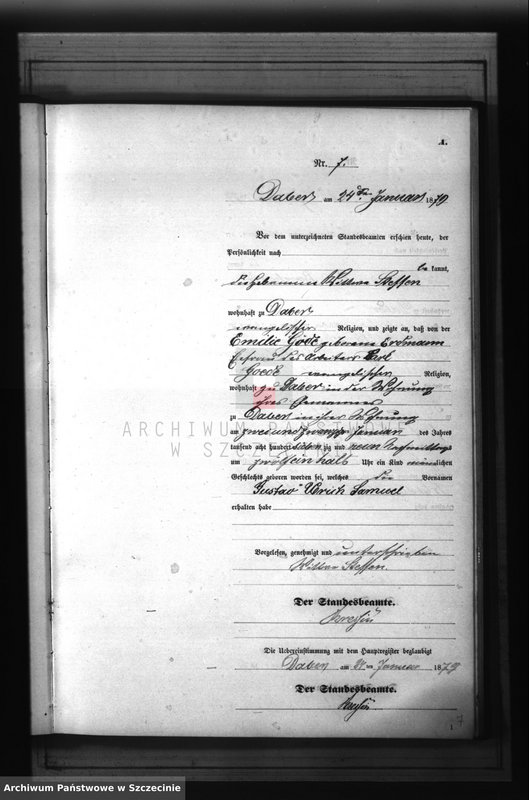 A.
Nr. 7.
Daber am 24ten Januar 1879
Vor dem unterzeichneten Standesbeamten erschien heute, der
Persönlichkeit nach
be kannt,
die Hebamme Wittwe Steffen
wohnhaft zu Daber
evangelischer Religion, und zeigte an, daß von der
Emilie Göde geborene Erdmann
Ehefrau des Arbeiters Karl
Goede evangelischer Religion,
wohnhaft zu Daber in der Wohnung
ihres Ehemannes
zu Daber in ihrer Wohnung
am zwei und zwanzigsten Januar des Jahres
tausend acht hundert sieben zig und neun Nachmittags
um zwölf ein halb Uhr ein Kind männlichen
Geschlechts geboren worden sei, welches die Vornamen
Gustav Ulrich Samuel
erhalten habe
Vorgelesen, genehmigt und unterschrieben
Wittwe Steffen.
Der Standesbeamte.
Die Uebereinstimmung mit dem Hauptregister beglaubigt
Daber am 24ten Januar 1879
Der Standesbeamte.
7
1
ARCHIWUM PAŃSTWOWE
W SZCZECINIE
Archiwum Państwowe w Szczecinie